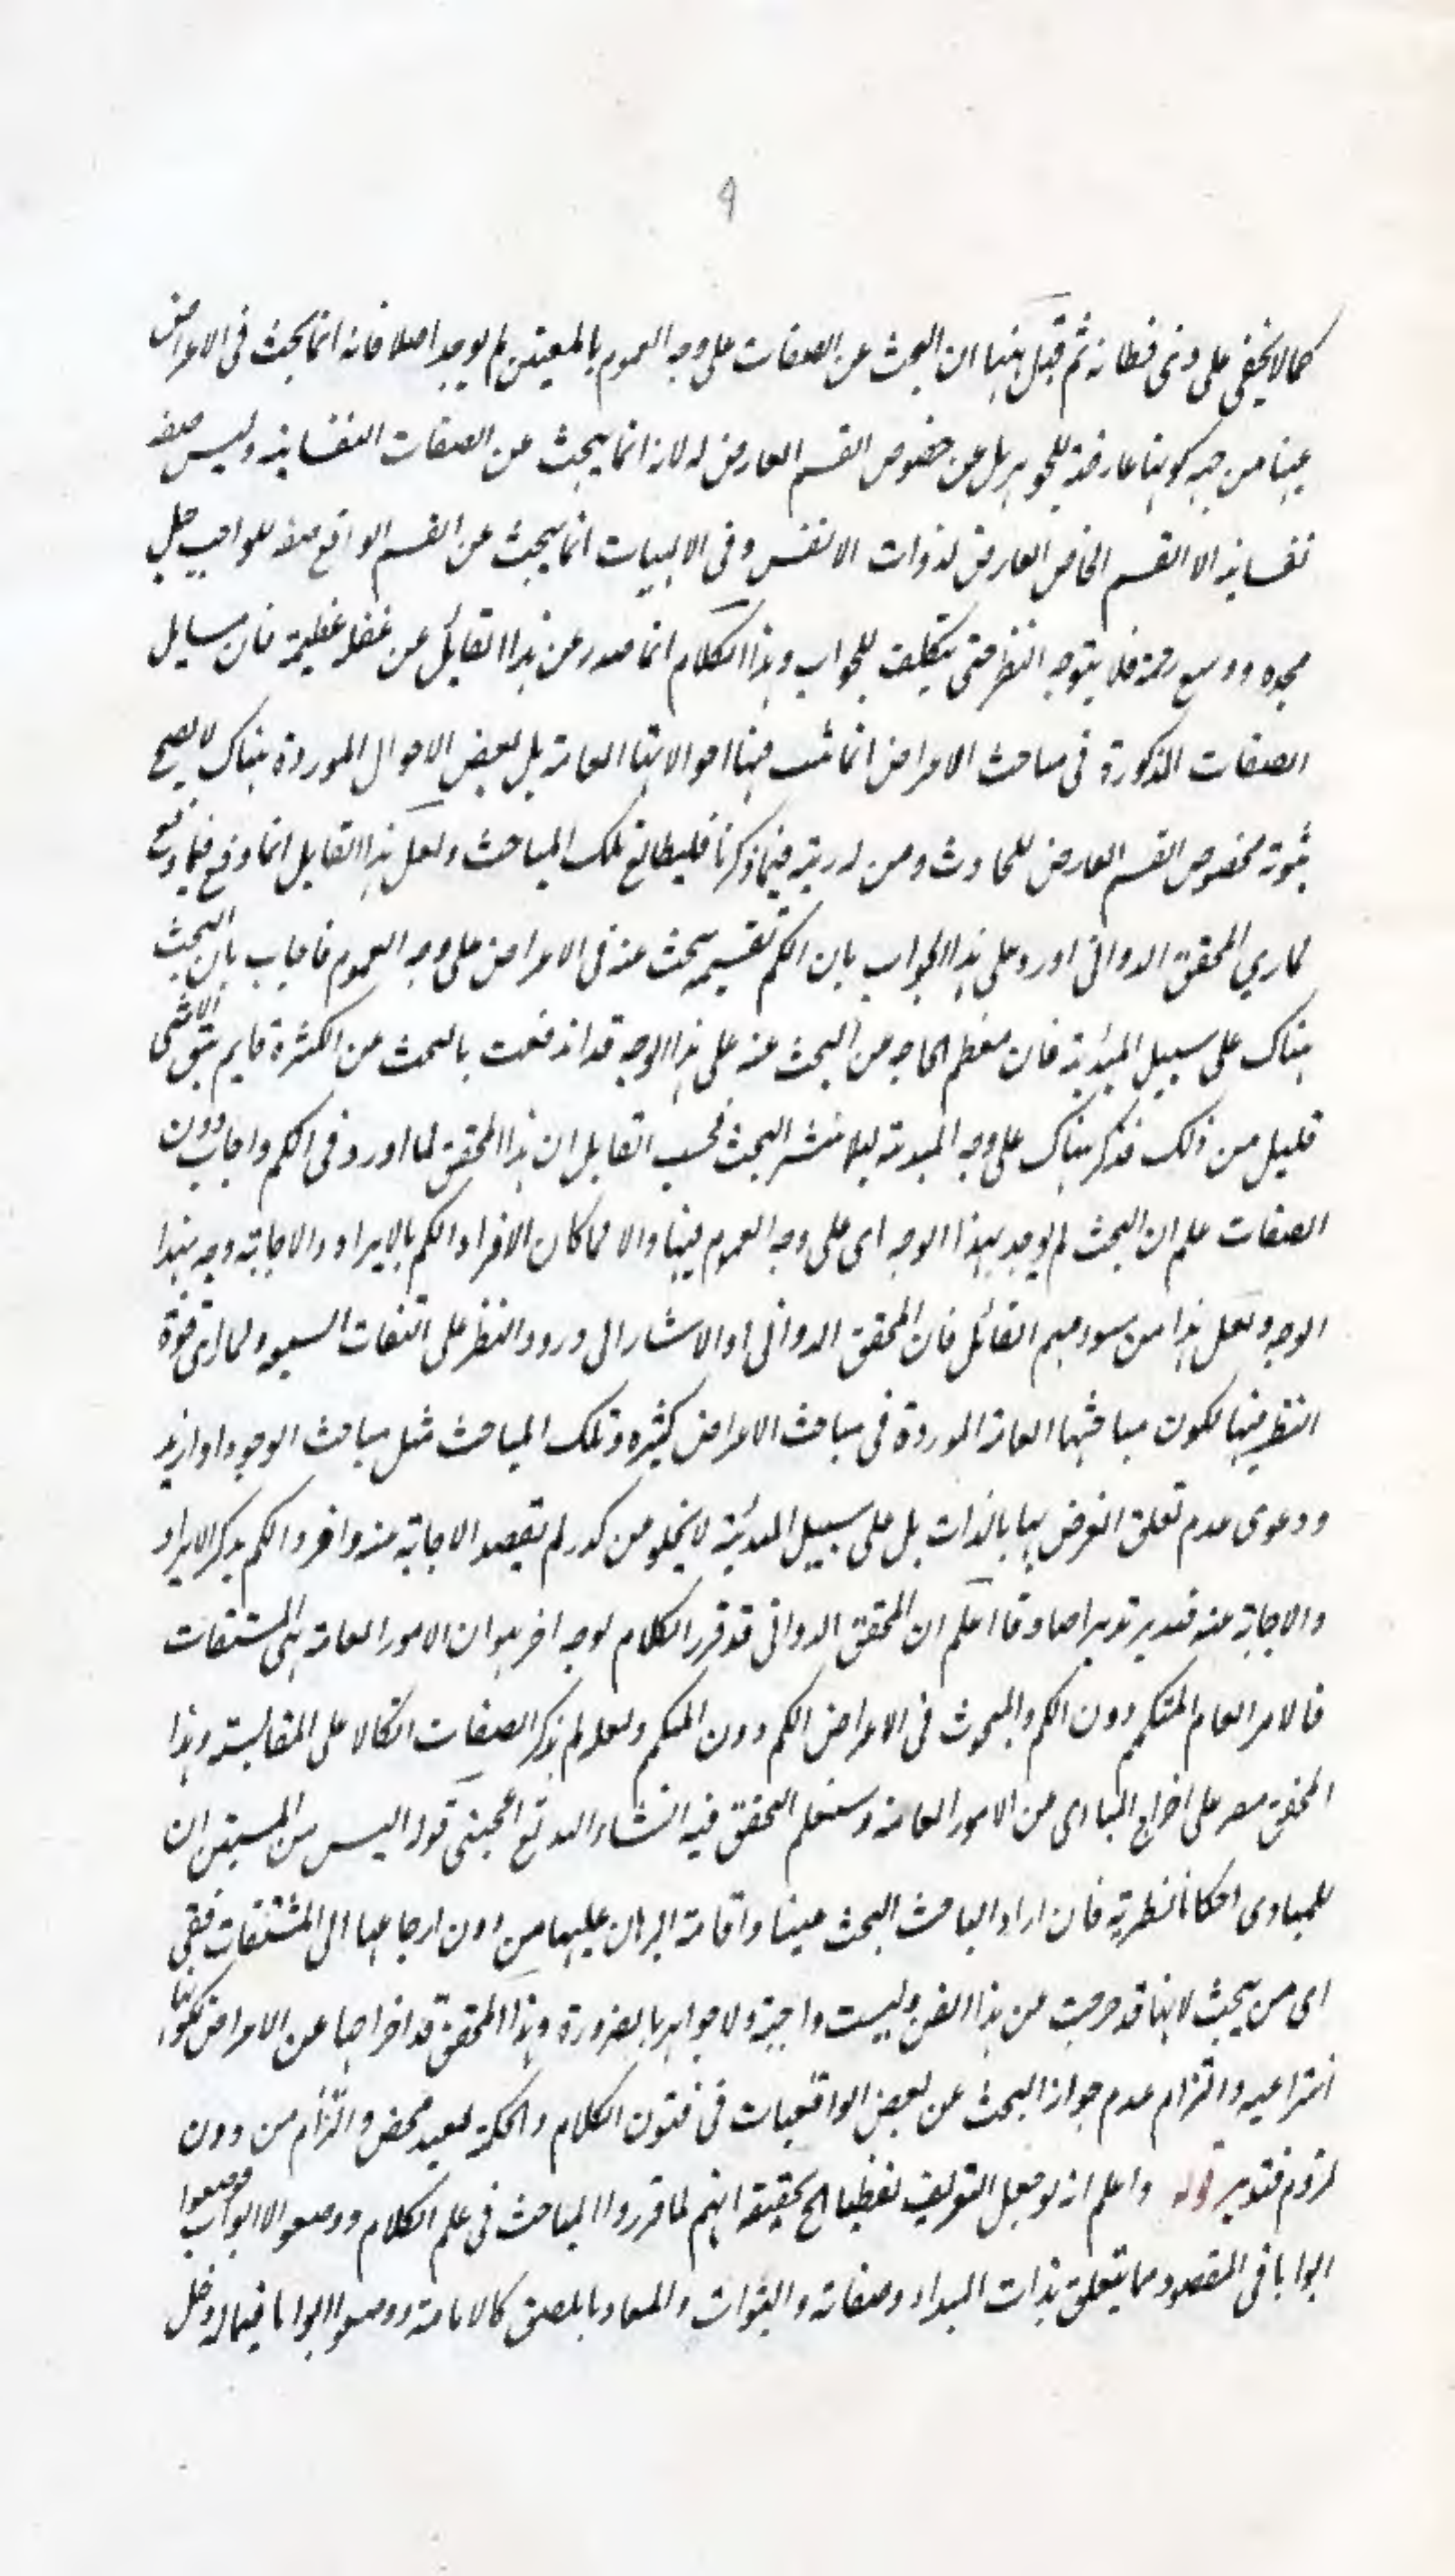 ٩
كما لا يخفى على ذي فطانة ثم قيل ههنا ان البحث عن الصفات على وجه العموم بالمعيتين لم يوجد اصلا فانه انما يبحث في الاعراض
عنها من جهة كونها عارضة للجوهر بل عن خصوص القسم العارض له لانه انما يبحث عن الصفات النفسانية وليس صفة
نفسانية الا القسم الخاص العارض لذوات الانفس وفي الالهيات انما يبحث عن القسم الواقع صفة للواجب جل
مجده ووسع رحمته فلا يتوجه النظر حتى يتكلف للجواب وهذا الكلام انما صدر عن هذا القايل عن غفلة عظيمة فان مسايل
الصفات المذكورة في مباحث الاعراض انما تثبت فيها احوالاتها العامة بل بعض الاحوال الموردة هناك لا يصح
ثبوته لخصوص القسم العارض للحادث ومن له ريبة فيما ذكرنا فليطالع تلك المباحث ولعل هذا القايل انما وقع فيما وقع
لما رأى المحقق الدواني اورد على هذا الجواب بان الكم تقسيمه يبحث عنه في الاعراض على وجه العموم فاجاب بان البحث
هناك على سبيل المبدئية فان معظم الحاجة من البحث عنه على هذا الوجه قد اندفعت بالبحث من الكثرة فلم يبق الا شئ
قليل من ذلك فذكر هناك على وجه المبدئية ليلا ينتشر البحث فحسب القايل ان هذا المحقق لما اورد في الكم واجاب دون
الصفات علم ان البحث لم يوجد بهذا الوجه اى على وجه العموم فيها والا لما كان الافراد الكم بالايراد والاجابة وجه بهذا
الوجه ولعل هذا من سوء فهم القائل فان المحقق الدواني اولا اشار الى ورود النظر على الصفات السبعة ولما رأى قوة
النظر فيها لكون مباحثها العامة الموردة في مباحث الاعراض كثيرة وتلك المباحث مثل مباحث الوجود او ازيد
ودعوى عدم تعلق الغرض بها بالذات بل على سبيل المبدئية لا يخلو من كدر لم يقصد الاجابة عنه وافرد الكم بذكر الايراد
والاجابة عنه فتدبر تدبرا صادقا اعلم ان المحقق الدواني قد قرر الكلام لوجه اخر هو ان الامور العامة هي المشتقات
فالامر العام المتكمم دون الكم والمبحوث في الاعراض الكم دون المتكمم ولعله لم يذكر الصفات اتكالا على المقايسة وهذا
المحقق مصر على اخراج المبادى من الامور العامة وستعلم التحقق فيه انشاء الله تع المجتبى قوله اليس من المستبين ان
للمبادى احكاما نظرية فان اراد الباحث البحث عنها واقامة البرهان عليها من دون ارجاعها الى المشتقات ففى
اى من يبحث لانها قد خرجت من هذا الفن وليست واجبة ولا جواهر بالضرورة وهذا المحقق قد اخراجها عن الاعراض لكونها
انتزاعيه والتزام عدم جواز البحث عن بعض الواقعيات في فنون الكلام والحكمة لبعيد محض والتزام من دون
لزوم فتدبر قوله واعلم انه لو جعل التعريف لفظيا الخ تحقيقه انهم لما قرروا المباحث في علم الكلام ووضعوا الابواب وضعوا
ابوابا في المقصود مما يتعلق بذات المبداء وصفاته والنبوات والمعاد بالملصق كالامامة ووضعوا ابوابا فيما له دخل